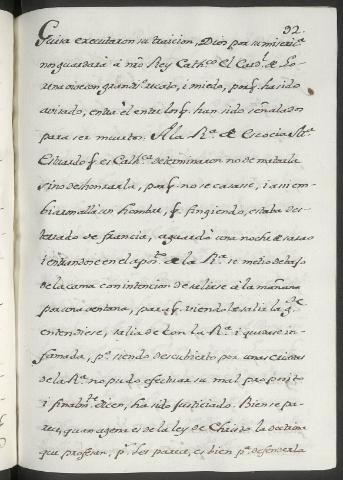 92.
Guisa executaron su traicion, Dios por su miseric.ª
nos guardará á nro Rey Cath.co El Card.l de Lo-
rena vive con grandis.o recato, i miedo, porq. ha sido
avisado, entra el entre los q. han sido señalados
para ser muertos. A la R.ª de Escocia M.ª
Estuardo q. es Cath.ca determinaron no de matarla
sino deshonrarla, porq. no se casase, i asi em-
biaronalla un hombre, q. fingiendo, estaba des-
terrado de francia, aguardó una noche de sarao
i entrandose en el apos.to de la R.ª se metio debajo
de la cama con intencion de salirse á la mañana
por una ventana, para q. viendole salir la g.te
entendiese, salia de con la R.ª i quedase in-
famada, p.º siendo descubierto por unas criadas
de la R.ª no pudo efectuar su mal proposito
i finalm.te dicen, ha sido justiciado. Bien se pa-
rece, quan agena es de la ley de Christo la doctrina
que profesan, p.s les parece, es bien p.ª defenderla